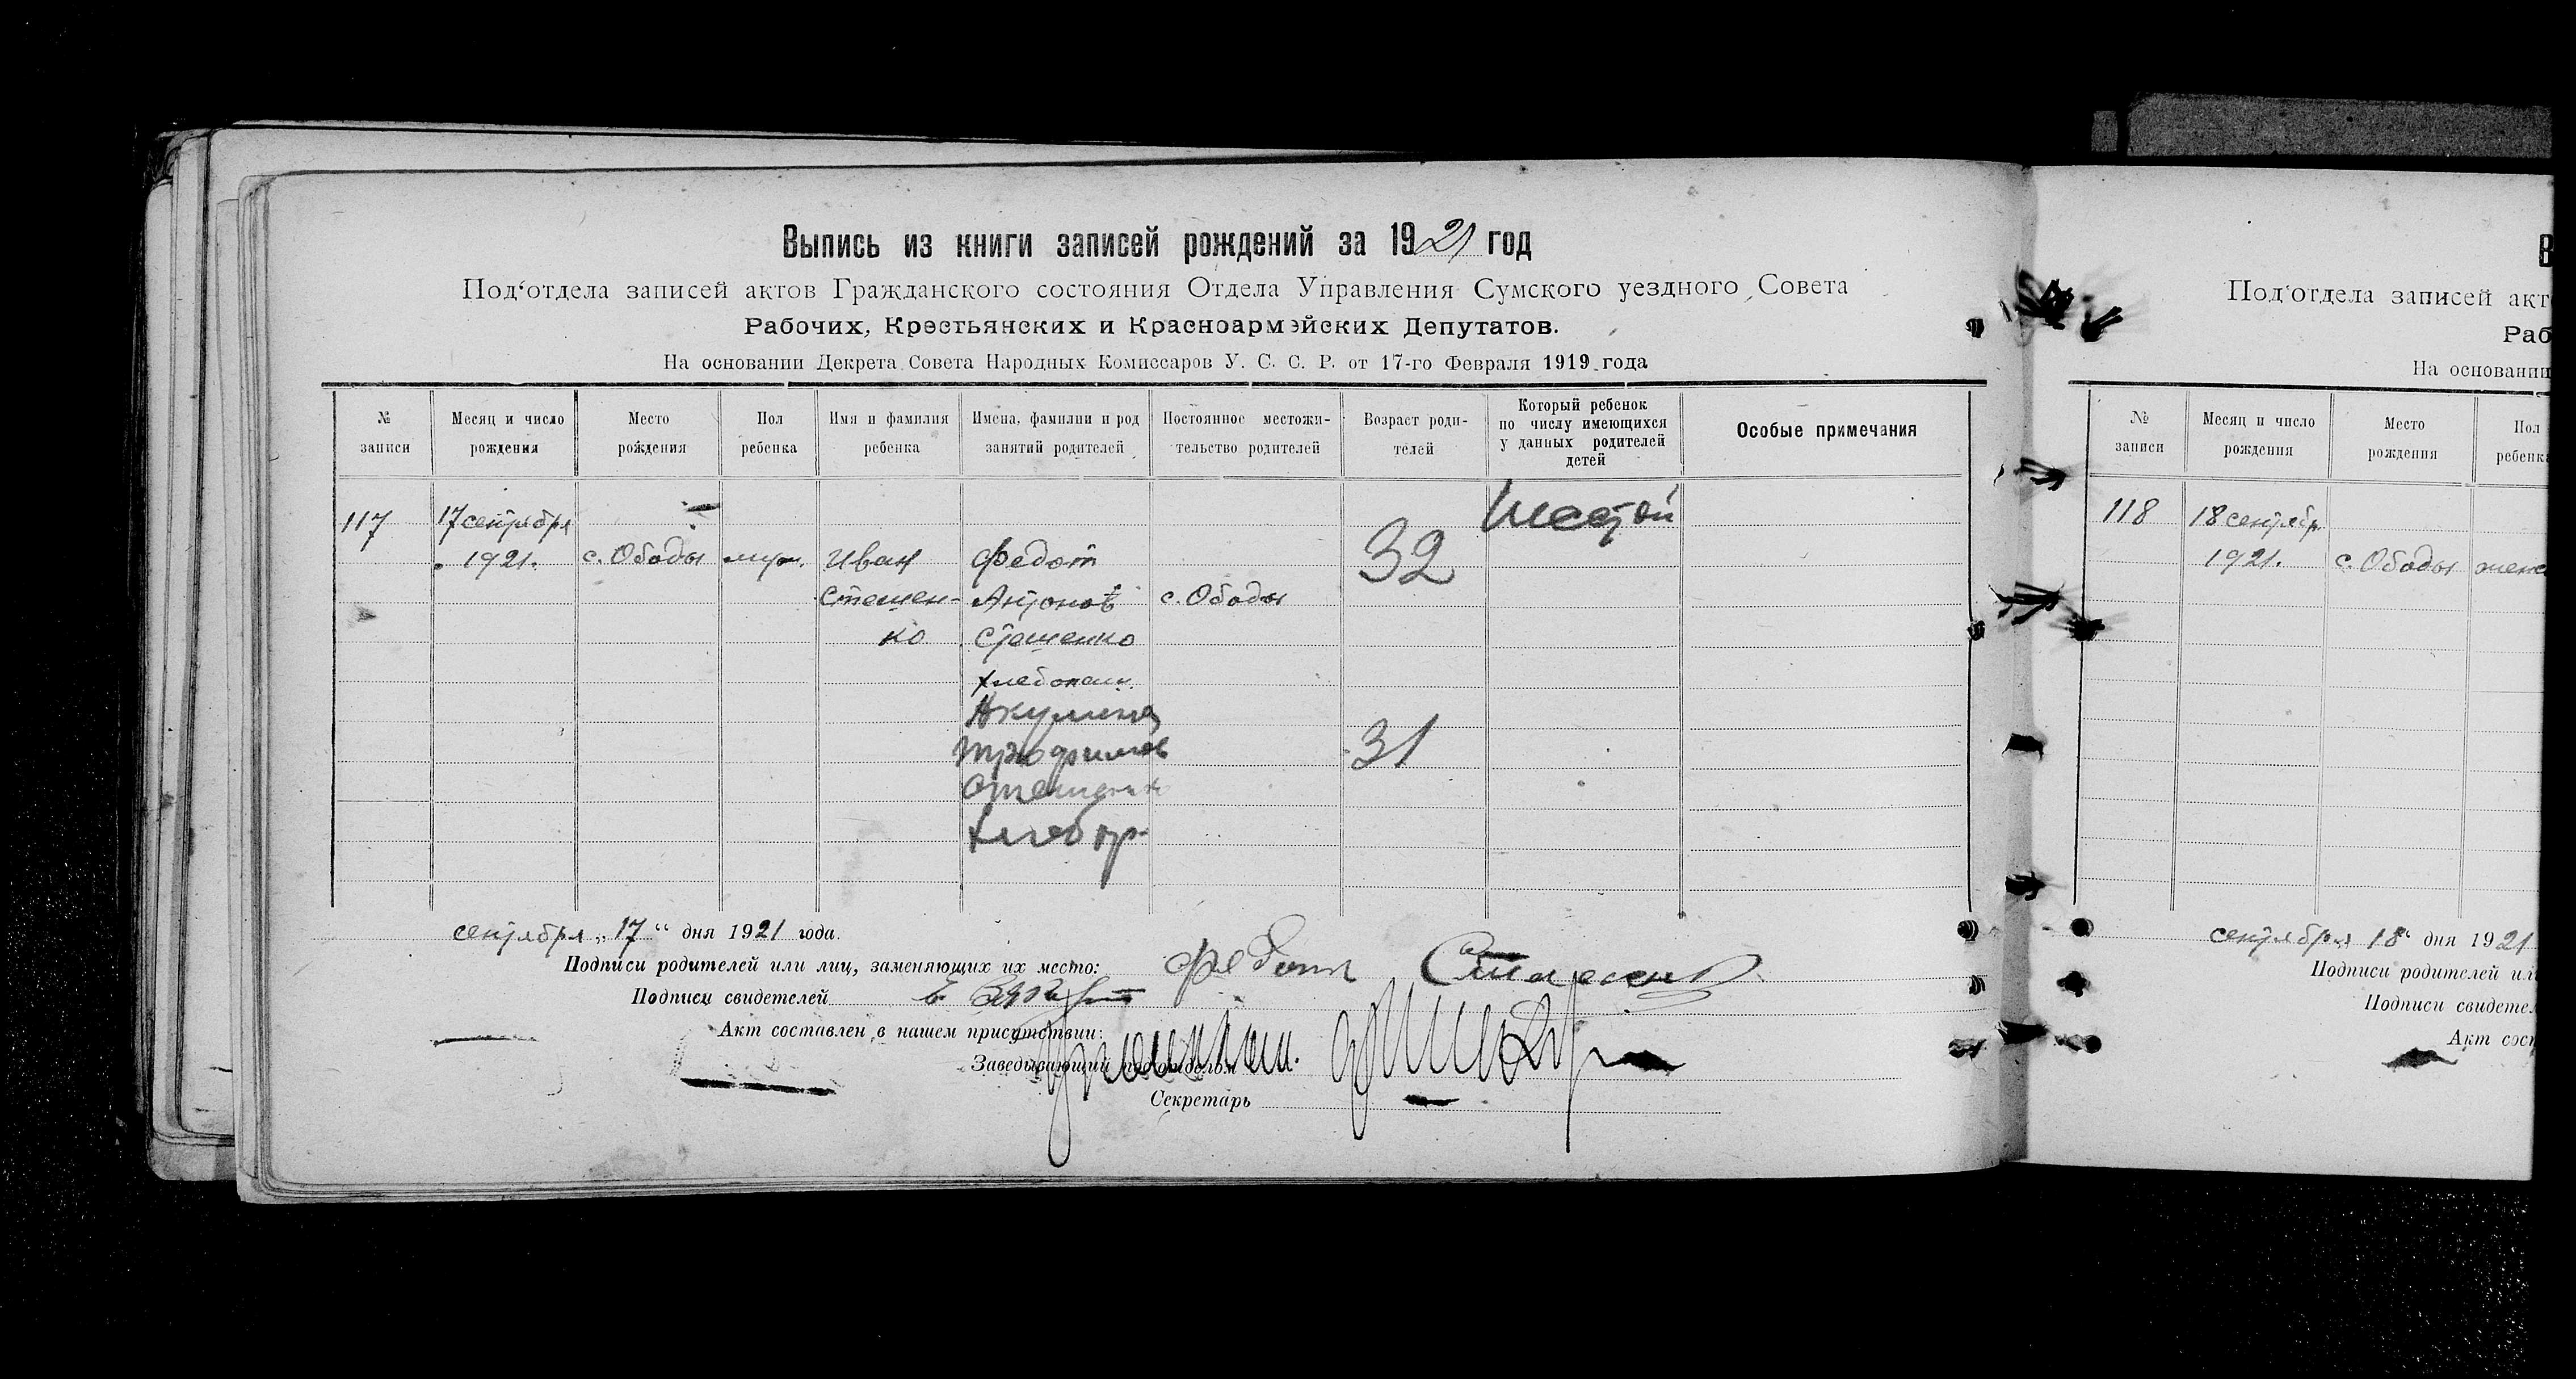 Выпись из книги записей рождений за 1921 год
Под‘отдела записей актов Гражданского состояния Отдела Управления Сумского уездного Совета
Рабочих, Крестьянских и Красноармэйских Депутатов.
На основании Декрета Совета Народных Комиссаров У. С. С. Р. от 17-го Февраля 1919 года
№ записи
Месяц и число рождения
Место рождения
Пол ребенка
Имя и фамилия ребенка
Имена, фамилии и род занятий родителей
Постоянное местожи-тельство родителей
Возраст роди-телей
Который ребенок по числу имеющихся у данных родителей детей
Особые примечания
117 17 сентября Шестой
1921. с. Ободы муж. Иван Федот 32
Стешен- Антонов с. Ободы
ко Стешенко
хлебопаш.
Акулина
Трофимов 31
Стешенко
хлебор.
сентября „17“ дня 1921 года.
Подписи родителей или лиц, заменяющих их место: Федот
Подписи свидетелей
Акт составлен в нашем присутствии:
Заведывающий подотделом
Секретарь
В
Под‘отдела записей акт
Раб
На основании
№ записи
Месяц и число рождения
Место рождения
Пол ребенк
118 18 сентябр.
1921. с. Ободы женс
сентября 18“ дня 1921
Подписи родителей ил
Подписи свидетел
Акт сост